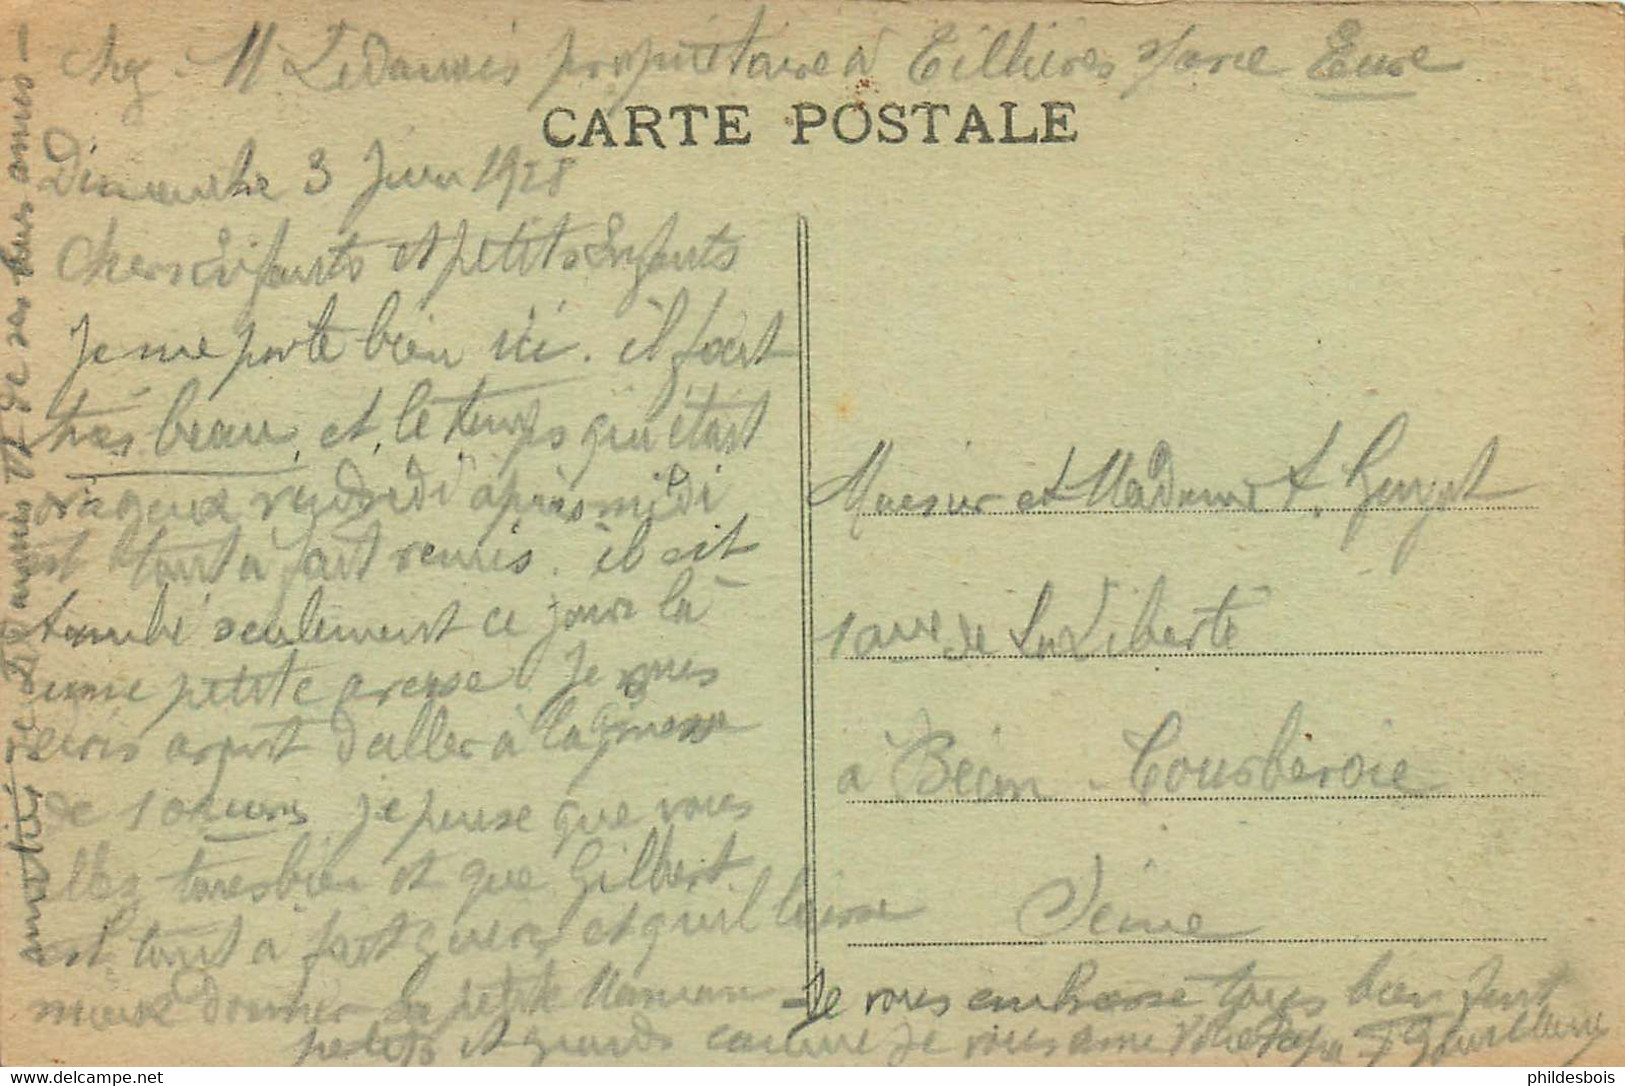 chez M Ledannois propriétaire à Tillières s/avre Eure
CARTE POSTALE
Dimanche 3 Juin 1928
chers Enfants et petits Enfants
Je me porte bien ici. il fait
très beau, et le temps qui était
orageux vendredi après midi
est tout à fait remis. il est
tombé seulement ce jour là
une petite averse. Je vous
écris avant d'aller à la messe
de 10 heures je pense que vous
allez tres bien et que Gilbert
est tout à fait guéri et qu'il laisse
mieux dormir sa petite Maman
Je vous embrasse tous bien fort
petits et grands comme je vous aime Votre Papa
Monsieur et Madame A.
1 avue de La Liberté
à Bécon - Courbevoie
Seine
amitiés de Ledannois et de ses amis -
phildesbois